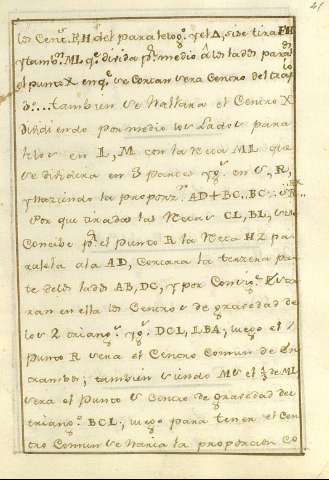 los Cent.s F, H del paralelog.o y el Δ, si se tira FH
y tamb.n ML q.e divida p.r medio â los lados paralelos
el punto X en q.e se cortan sera Centro del trap
... tambien se hallara el Centro X
dividiendo por medio los Lados para
lelos en L, M con la Recta ML que
se dividira en 3 partes yg.s en S, R,
y haziendo la proporz.n AD+BC..BC::SR
Por que tiradas las Rectas CL, BL, si se
Concibe p.r el punto R la Recta HZ pa
ralela ala AD, Cortara la tercera par
te delos lados AB, DC, y por Consig.te Esta
ran en ella los Centros de gravedad de
los 2 triang.s yg.s DCL, LBA; luego el
punto R sera el Centro Comun de En
trambos; tambien siendo MS el ⅓ de ML
sera el punto S Centro de gravedad del
triang.o BCL; luego para tener el Cen
tro Comun se haria la proporcion Co